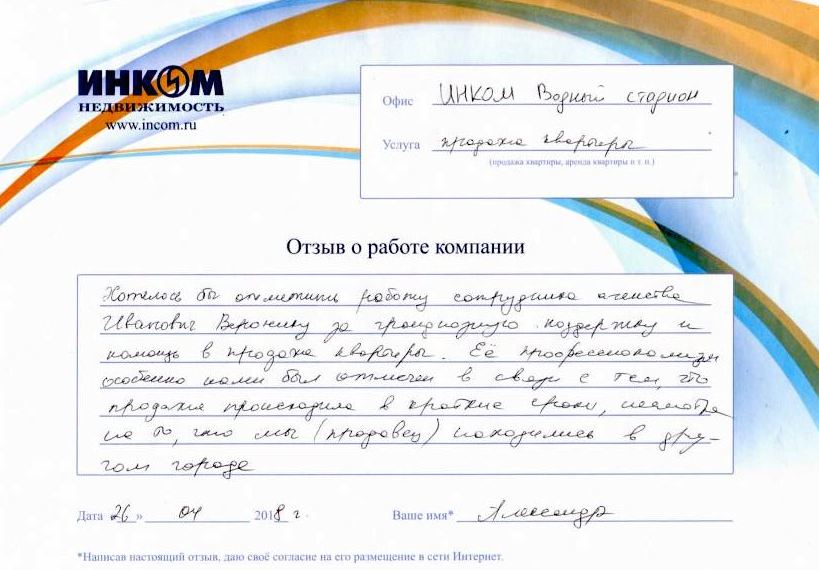 ИНКОМ
НЕДВИЖИМОСТЬ
www.incom.ru
Офис ИНКОМ Водный стадион
Услуга продажа квартиры
(продажа квартиры, аренда квартиры и т. п.)
Отзыв о работе компании
Хотелось бы отметить работу сотрудника агенства
Иванович Веронику за грандиозную поддержку и
помощь в продаже квартиры. Её профессионализм
особенно нами был отмечен в связи с тем, что
продажа происходила в краткие сроки, несмотря
на то, что мы (продавец) находились в дру-
гом городе
Дата 26 » 04 2018 г. Ваше имя* Александр
*Написав настоящий отзыв, даю своё согласие на его размещение в сети Интернет.